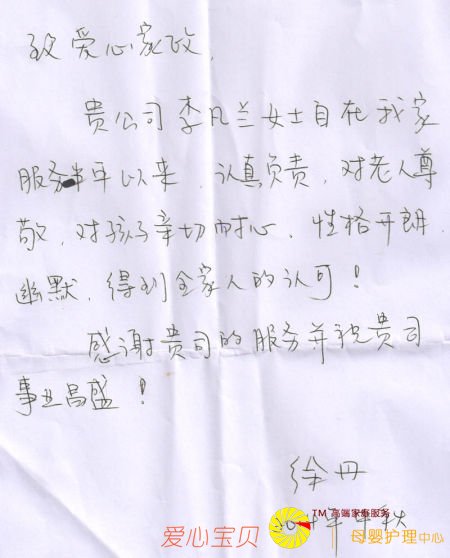 致爱心家政,
贵公司李凡兰女士自在我家
服务半年以来,认真负责,对老人尊
敬,对孩子亲切耐心,性格开朗,
幽默,得到全家人的认可!
感谢贵司的服务并祝贵司
事业昌盛!
徐丹
TM 高端家庭服务
年中秋
爱心宝贝 母婴护理中心